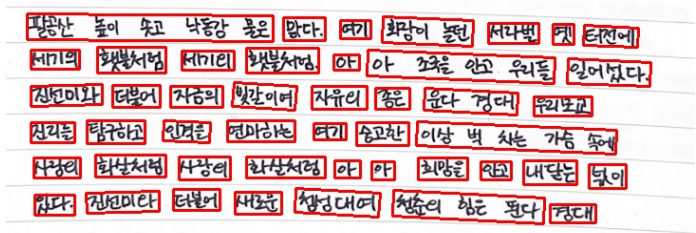 팔공산 높이 솟고 낙동강 물은 맑다. 여기 화랑이 놀던 서라벌 옛 터전에
세기의 횃불처럼 세기의 횃불처럼. 아 아 조국을 안고 우리들 일어섰다.
진선미와 더불어 자유의 빛같이여 자유의 종은 운다 경대 우리모교
진리를 탐구하고 인격을 연마하는 여기 숭고한 이상 벅 차는 가슴 속에
사랑의 화살처럼 사랑의 화살처럼 아 아 희망을 안고 내닫는 넋이
있다. 진선미와 더불어 새로운 첨성대여 청춘의 힘은 뛴다 경대